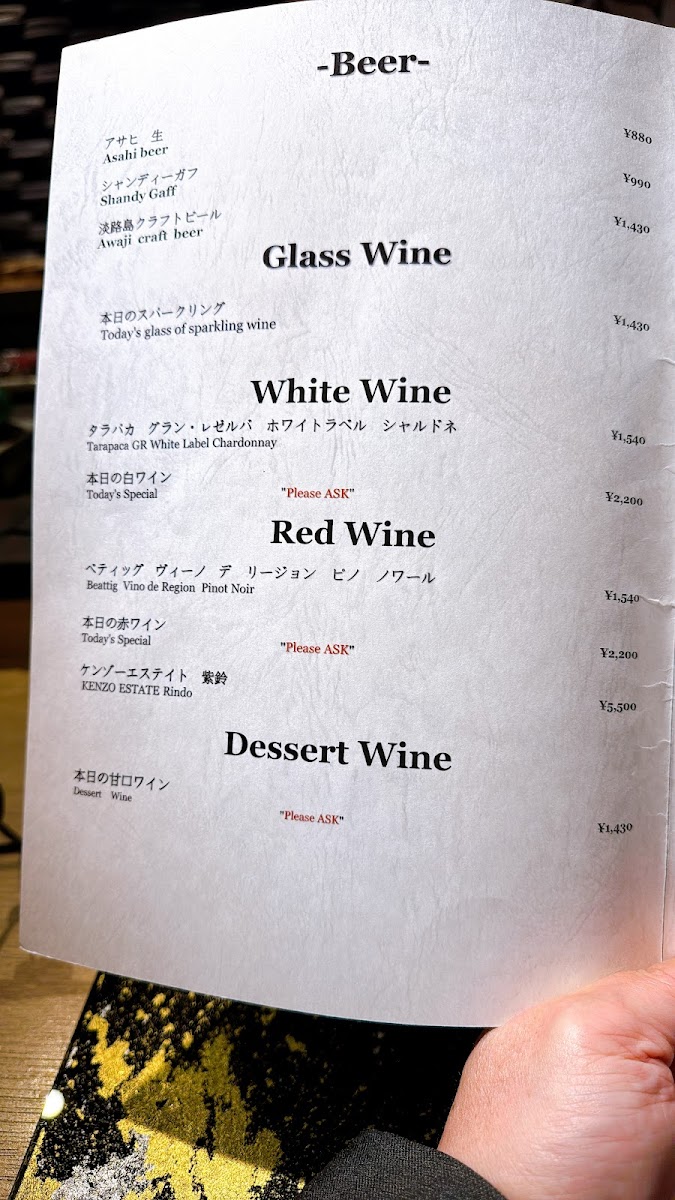 -Beer-
アサヒ 生
Asahi beer
¥880
シャンディーガフ
Shandy Gaff
¥990
淡路島クラフトビール
Awaji craft beer
¥1,430
Glass Wine
本日のスパークリング
Today's glass of sparkling wine
¥1,430
White Wine
タラパカ グラン・レゼルバ ホワイトラベル シャルドネ
Tarapaca GR White Label Chardonnay
¥1,540
本日の白ワイン
Today's Special
"Please ASK"
¥2,200
Red Wine
ベティッグ ヴィーノ デ リージョン ピノ ノワール
Beattig Vino de Region Pinot Noir
¥1,540
本日の赤ワイン
Today's Special
"Please ASK"
¥2,200
ケンゾーエステイト 紫鈴
KENZO ESTATE Rindo
¥5,500
Dessert Wine
本日の甘口ワイン
Dessert Wine
"Please ASK"
¥1,430